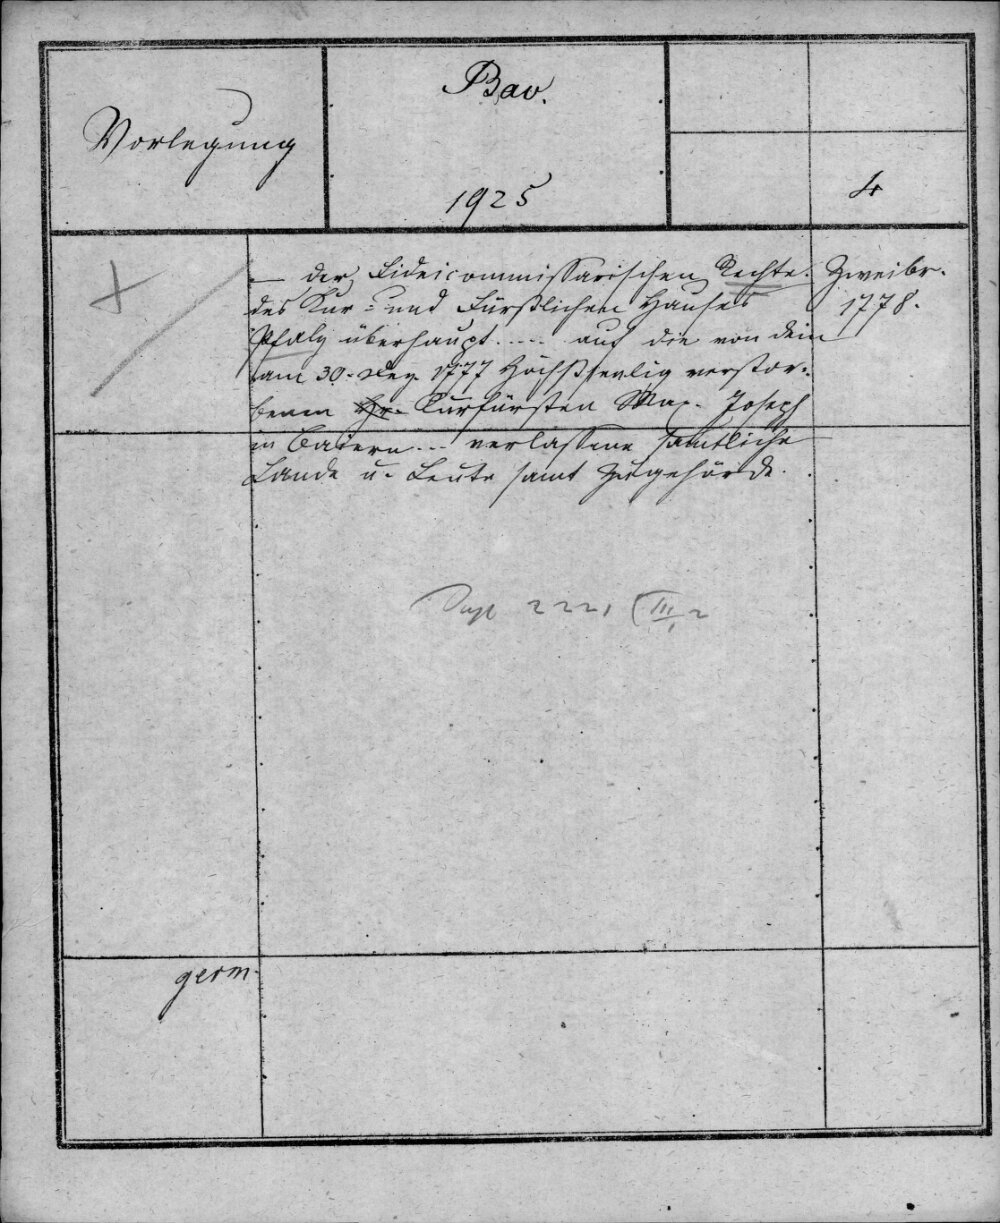 Vorlegung
Bav.
1925
4
— der Fideicommissarischen Rechte
des Kur- und Fürstlichen Hauses
Pfalz überhaupt ..... auf die von dem
am 30. Dez. 1777 Höchstseelig verstor-
benen Hr. Kurfürsten Max. Joseph
in Baiern ... verlassene samtliche
Lande u. Leute samt Zugehörde.
Zweibr.
1778.
2221 III, 2
germ.